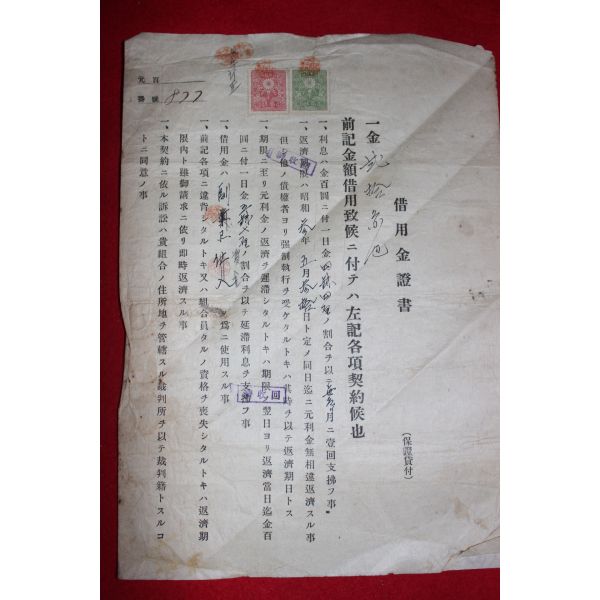 借用金證書
(保證貸付)
一金 貳拾
前記金額借用致候ニ付テハ左記各項契約候也
一、利息ハ金百圓ニ付一日金四錢 ノ割合ヲ以テ 月ニ壹回支拂フ事
一、返濟期限ハ昭和參年五月 日ト定メ同日迄ニ元利金無相違返濟スル事
但シ他ノ債權者ヨリ强制執行ヲ受ケタルトキハ其時ヲ以テ返濟期日トス
一、期限ニ至リ元利金ノ返濟ヲ遲滯シタルトキハ期限ノ翌日ヨリ返濟當日迄金百
圓ニ付一日金 ノ割合ヲ以テ延滯利息ヲ支拂フ事
一、借用金ハ 購入 ノ爲ニ使用スル事
一、前記各項ニ違背シタルトキ又ハ組合員タルノ資格ヲ喪失シタルトキハ返濟期
限內ト雖御請求ニ依リ即時返濟スル事
一、本契約ニ依ル訴訟ハ貴組合ノ住所地ヲ管轄スル裁判所ヲ以テ裁判籍トスルコ
トニ同意ノ事
元百
番號 877
回收